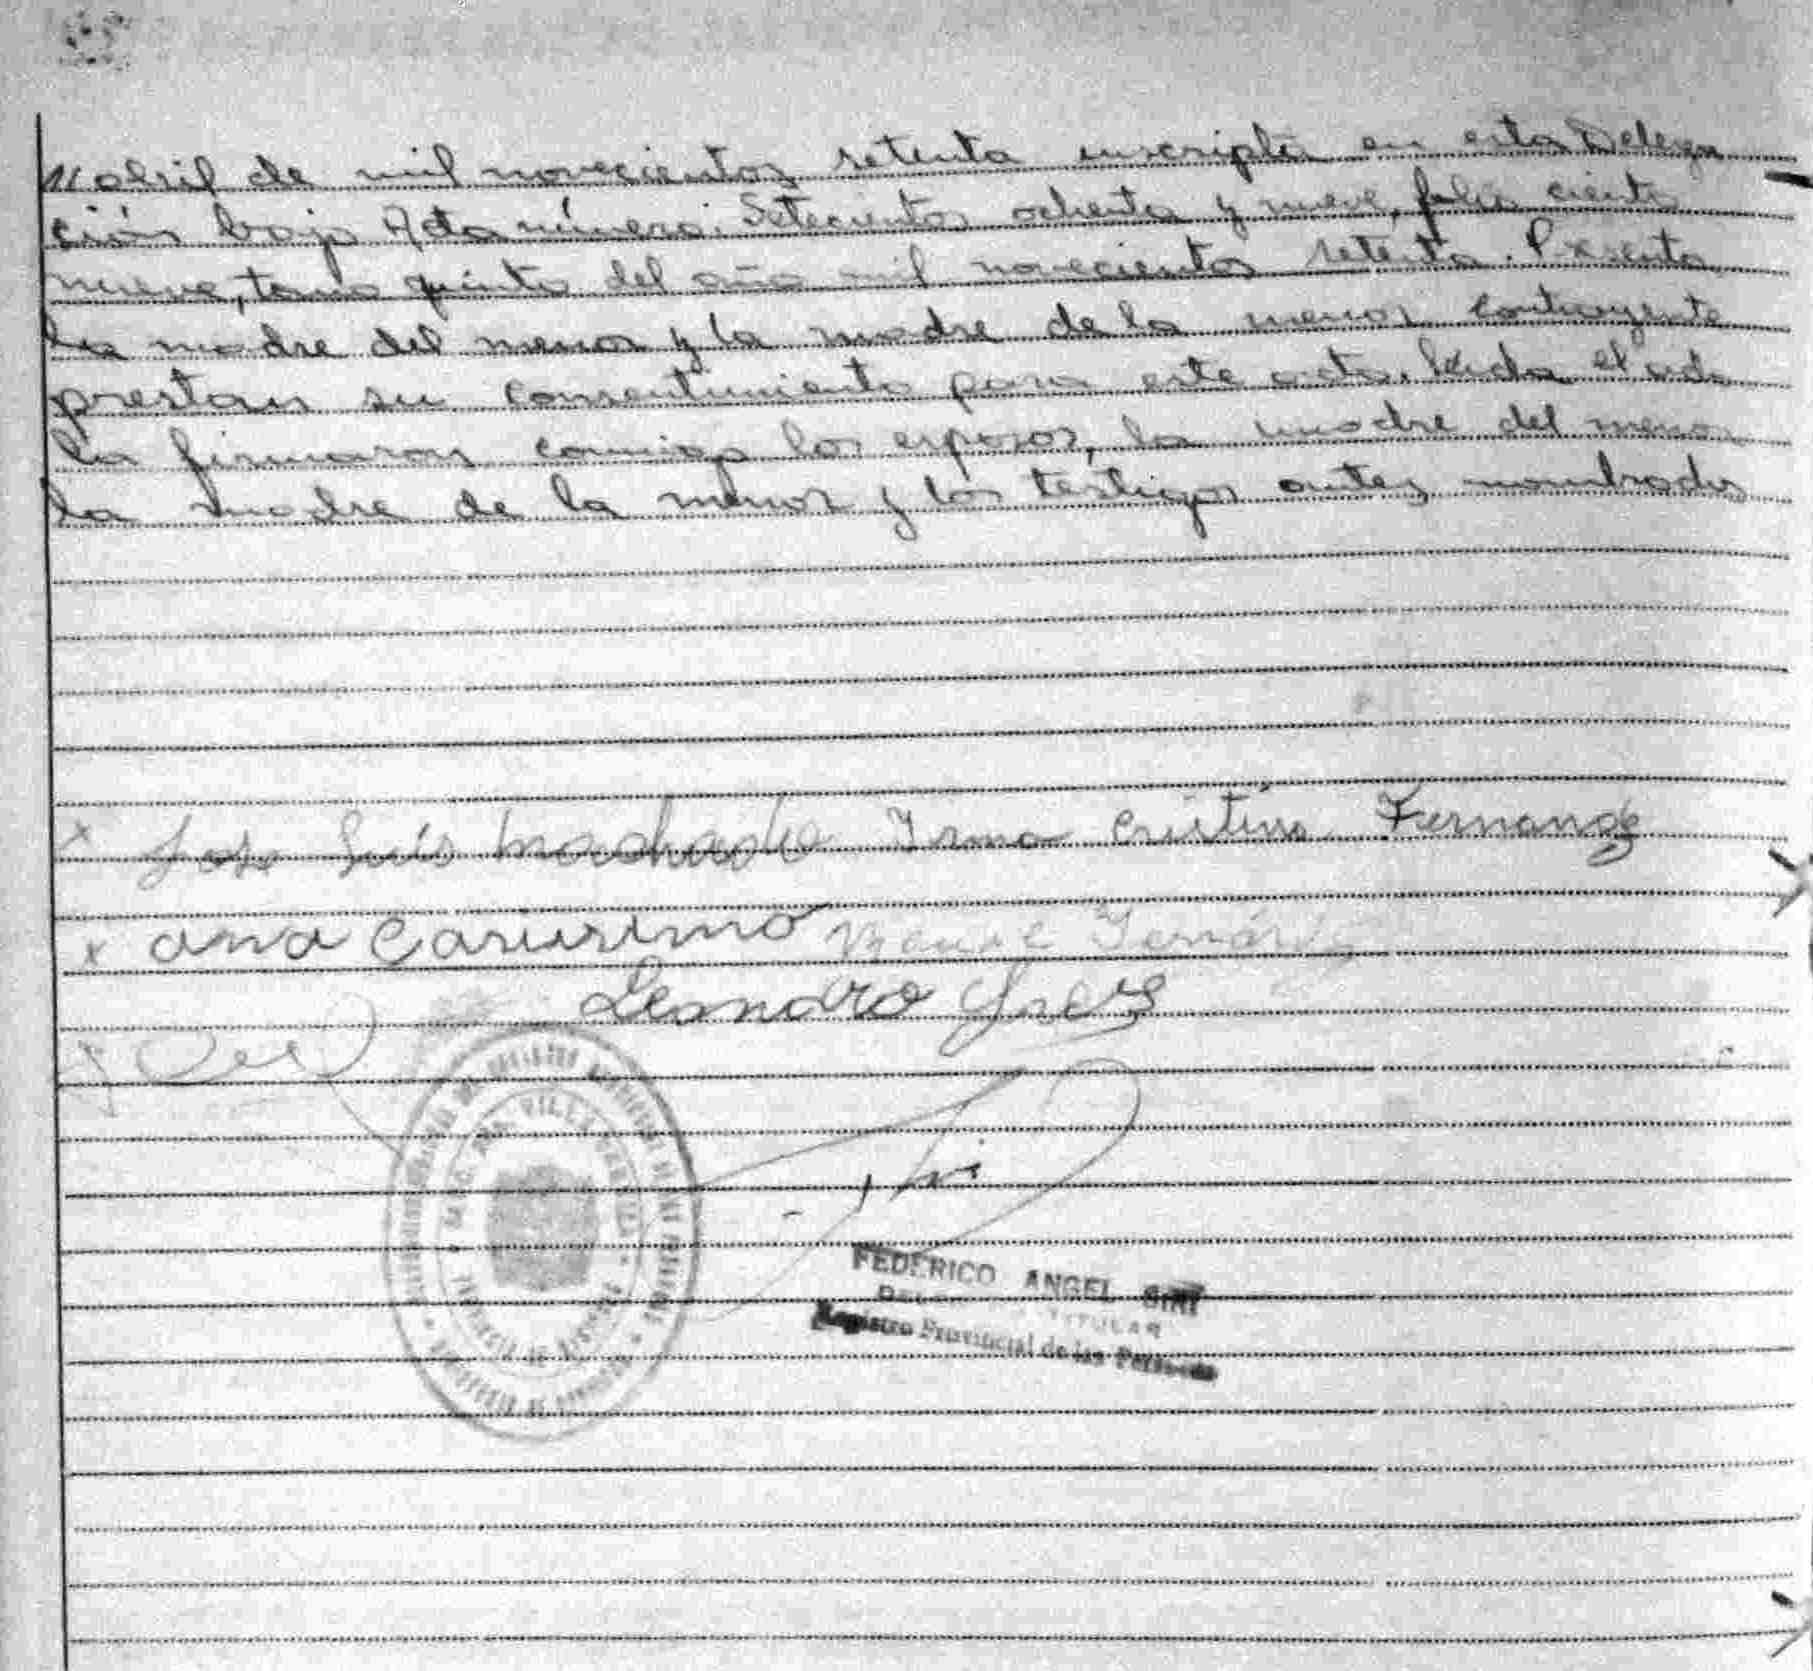 // abril de mil novecientos setenta inscripta en esta Delega
ción bajo Acta número: Setecientos ochenta y nueve, folio ciento
nueve, tomo quinto del año mil novecientos setenta. Presente
la madre del menor y la madre de la menor contrayente
prestan su consentimiento para este acto. Leida el acta
la firmaron conmigo los esposos, la madre del menor
la madre de la menor y los testigos antes nombrados
x Jose Luis Machado Irma Cristina Fernandez
x ana Carissimo
Leandro
FEDERICO ANGEL SIRI
TITULAR
Registro Provincial de las Personas